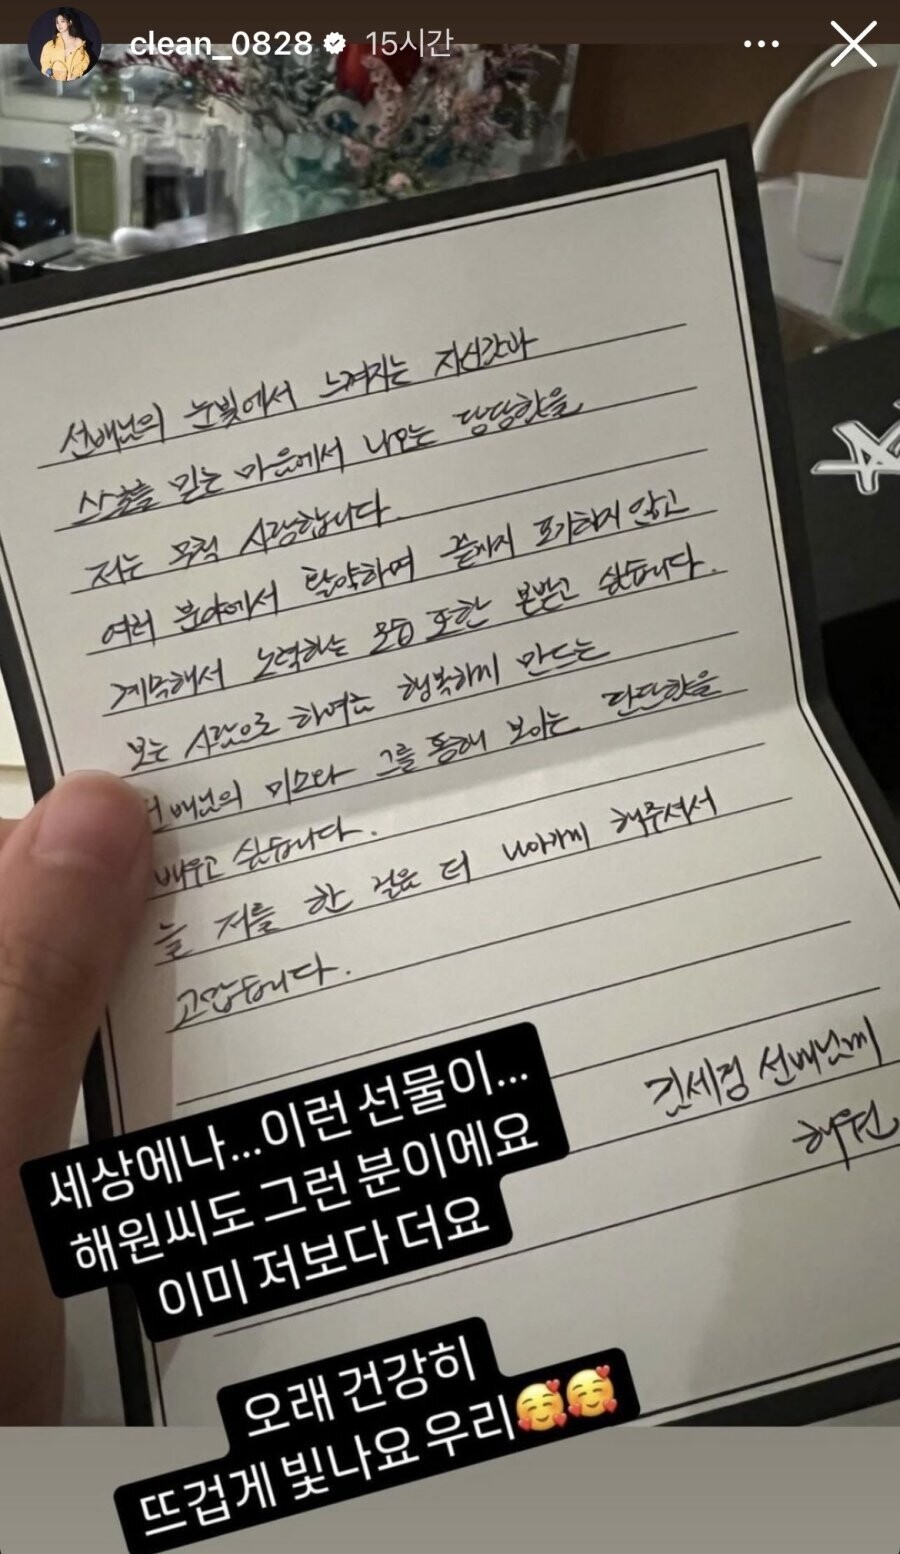 clean_0828 15시간
선배님의 눈빛에서 느껴지는 자신감과
스스로를 믿는 마음에서 나오는 당당함을
저는 무척 사랑합니다.
여러 분야에서 활약하며 끝까지 포기하지 않고
계속해서 노력하는 모습 또한 본받고 싶습니다.
보는 사람으로 하여금 행복하게 만드는
선배님의 미소와 그를 통해 보이는 단단함을
배우고 싶습니다.
늘 저를 한 걸음 더 나아가게 해주셔서
고맙습니다.
김세정 선배님께
해원
세상에나...이런 선물이...
해원씨도 그런 분이에요
이미 저보다 더요
오래 건강히
뜨겁게 빛나요 우리🥰🥰